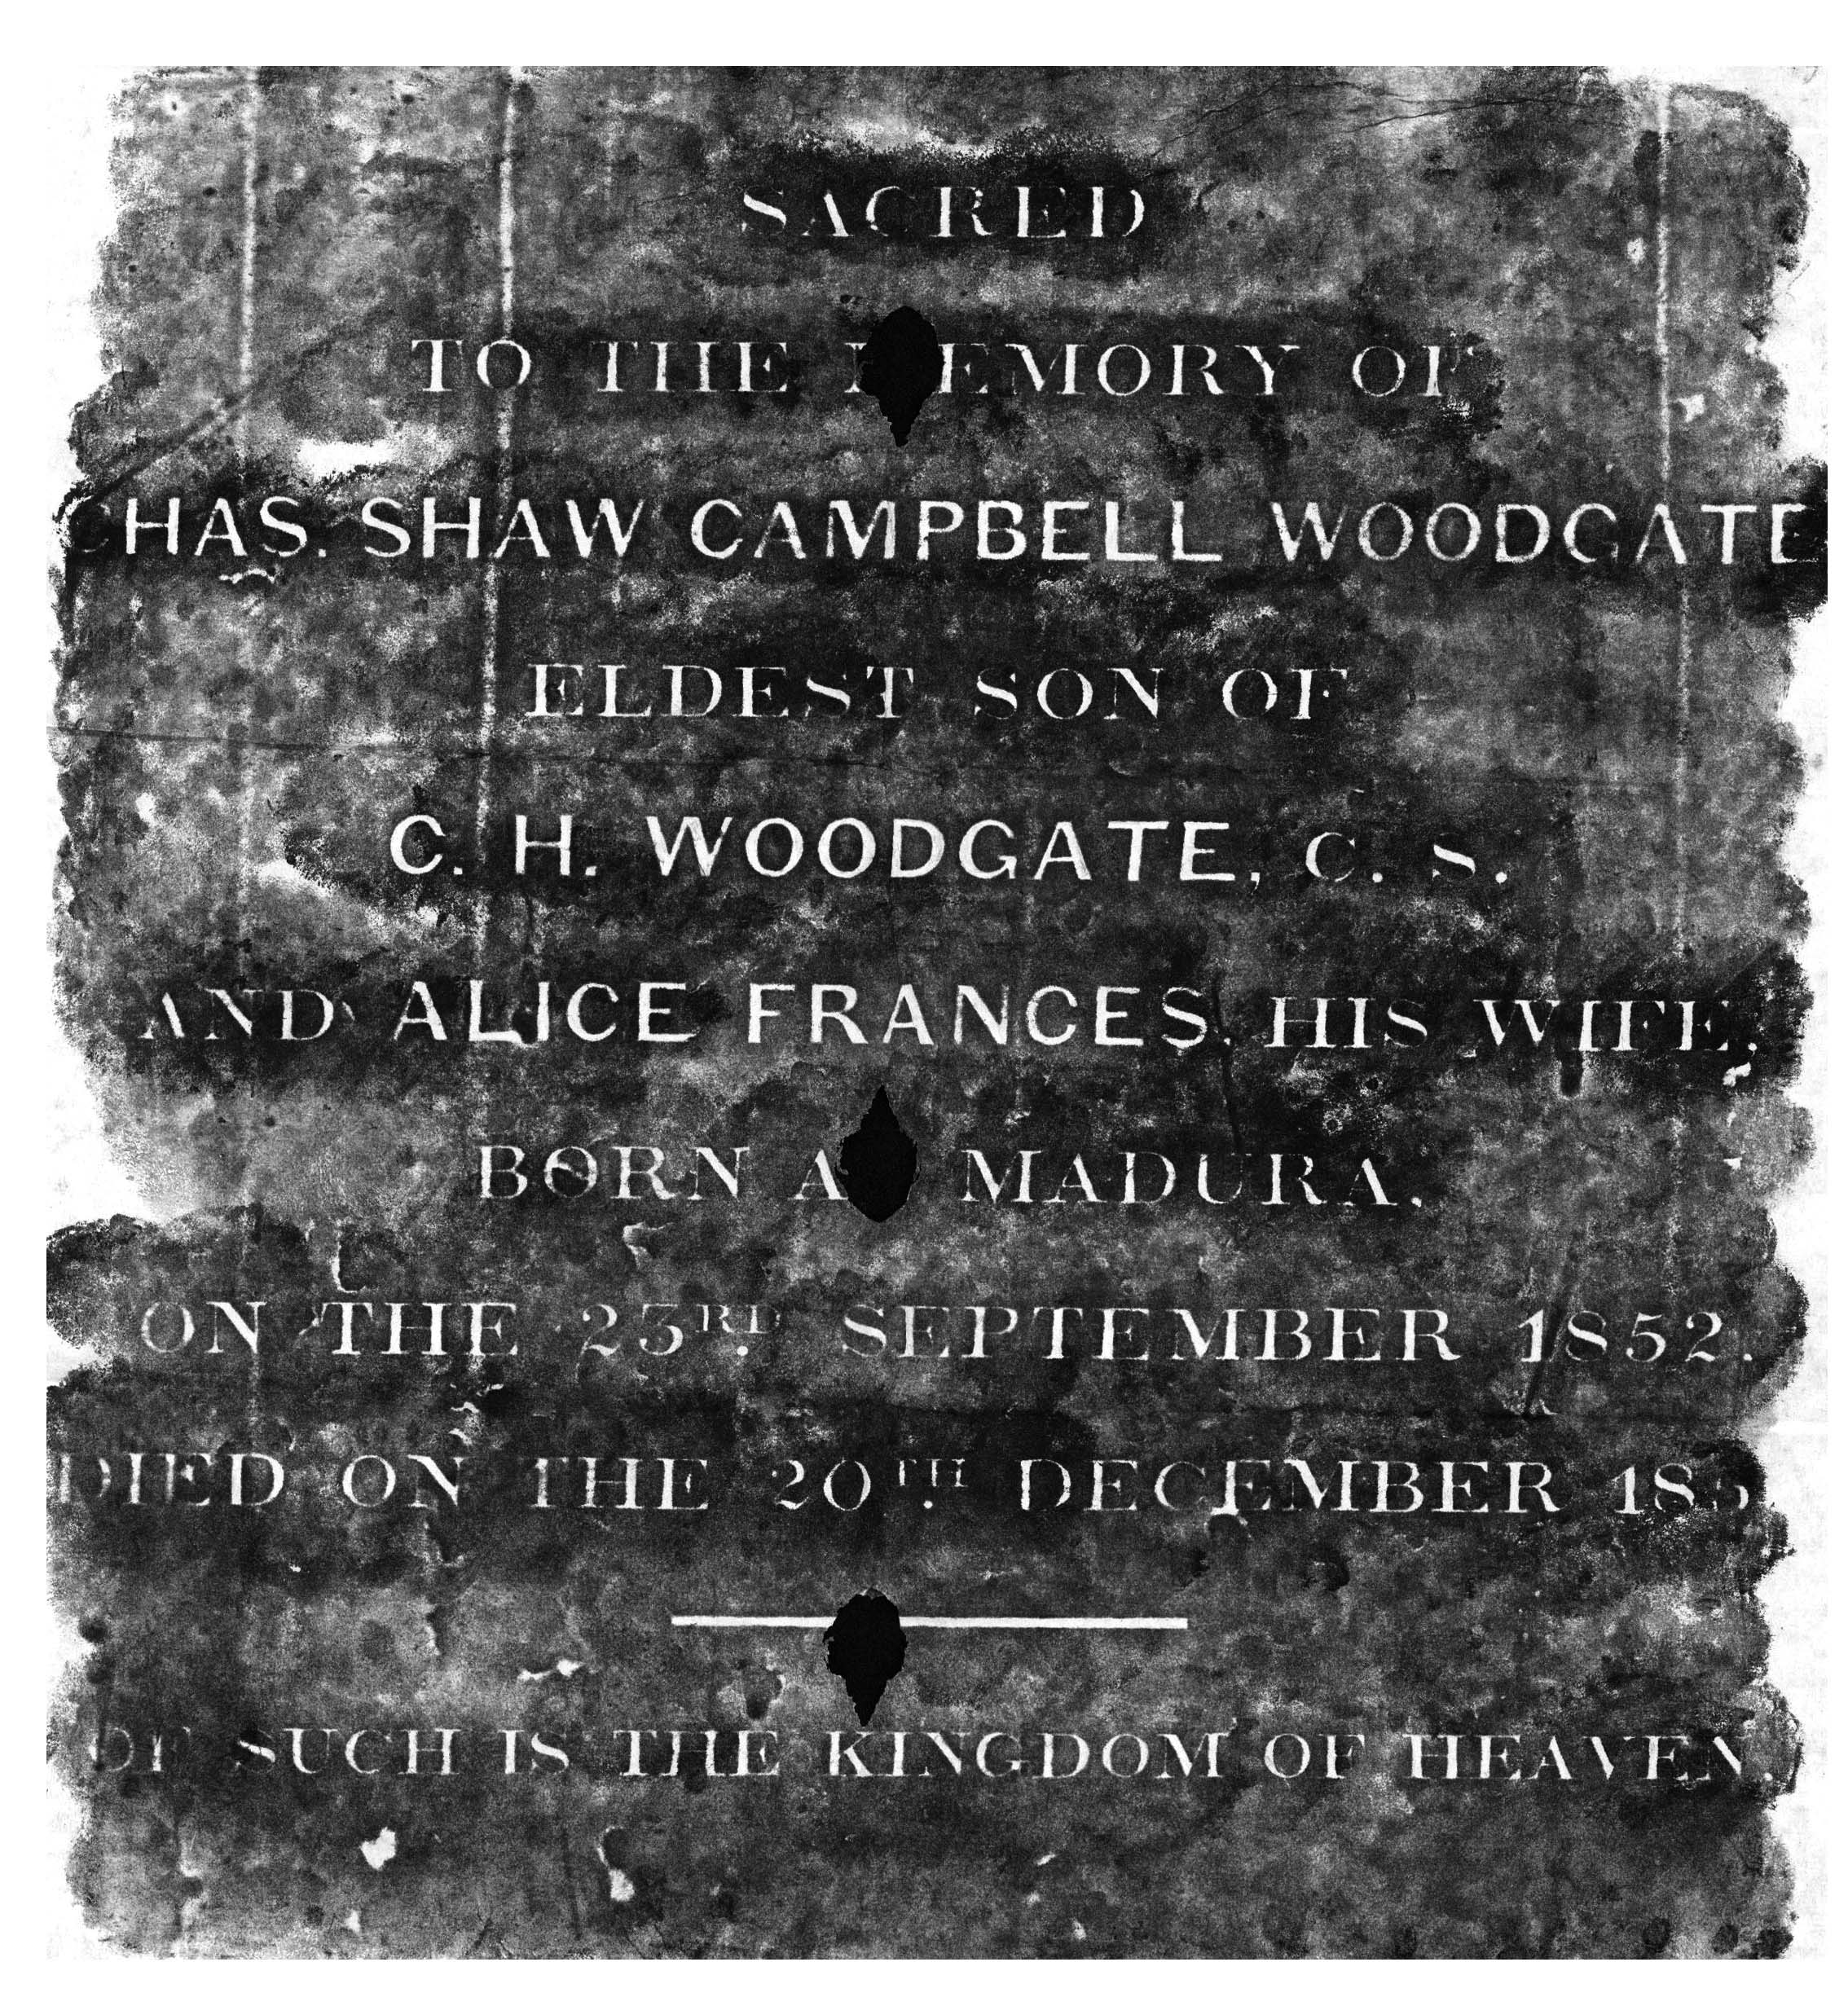 SACRED
TO THE MEMORY OF
CHAS. SHAW CAMPBELL WOODGATE
ELDEST SON OF
C. H. WOODGATE, C. S.
AND ALICE FRANCES, HIS WIFE.
BORN AT MADURA.
ON THE 23RD SEPTEMBER 1852.
DIED ON THE 20TH DECEMBER
OF SUCH IS THE KINGDOM OF HEAVEN.